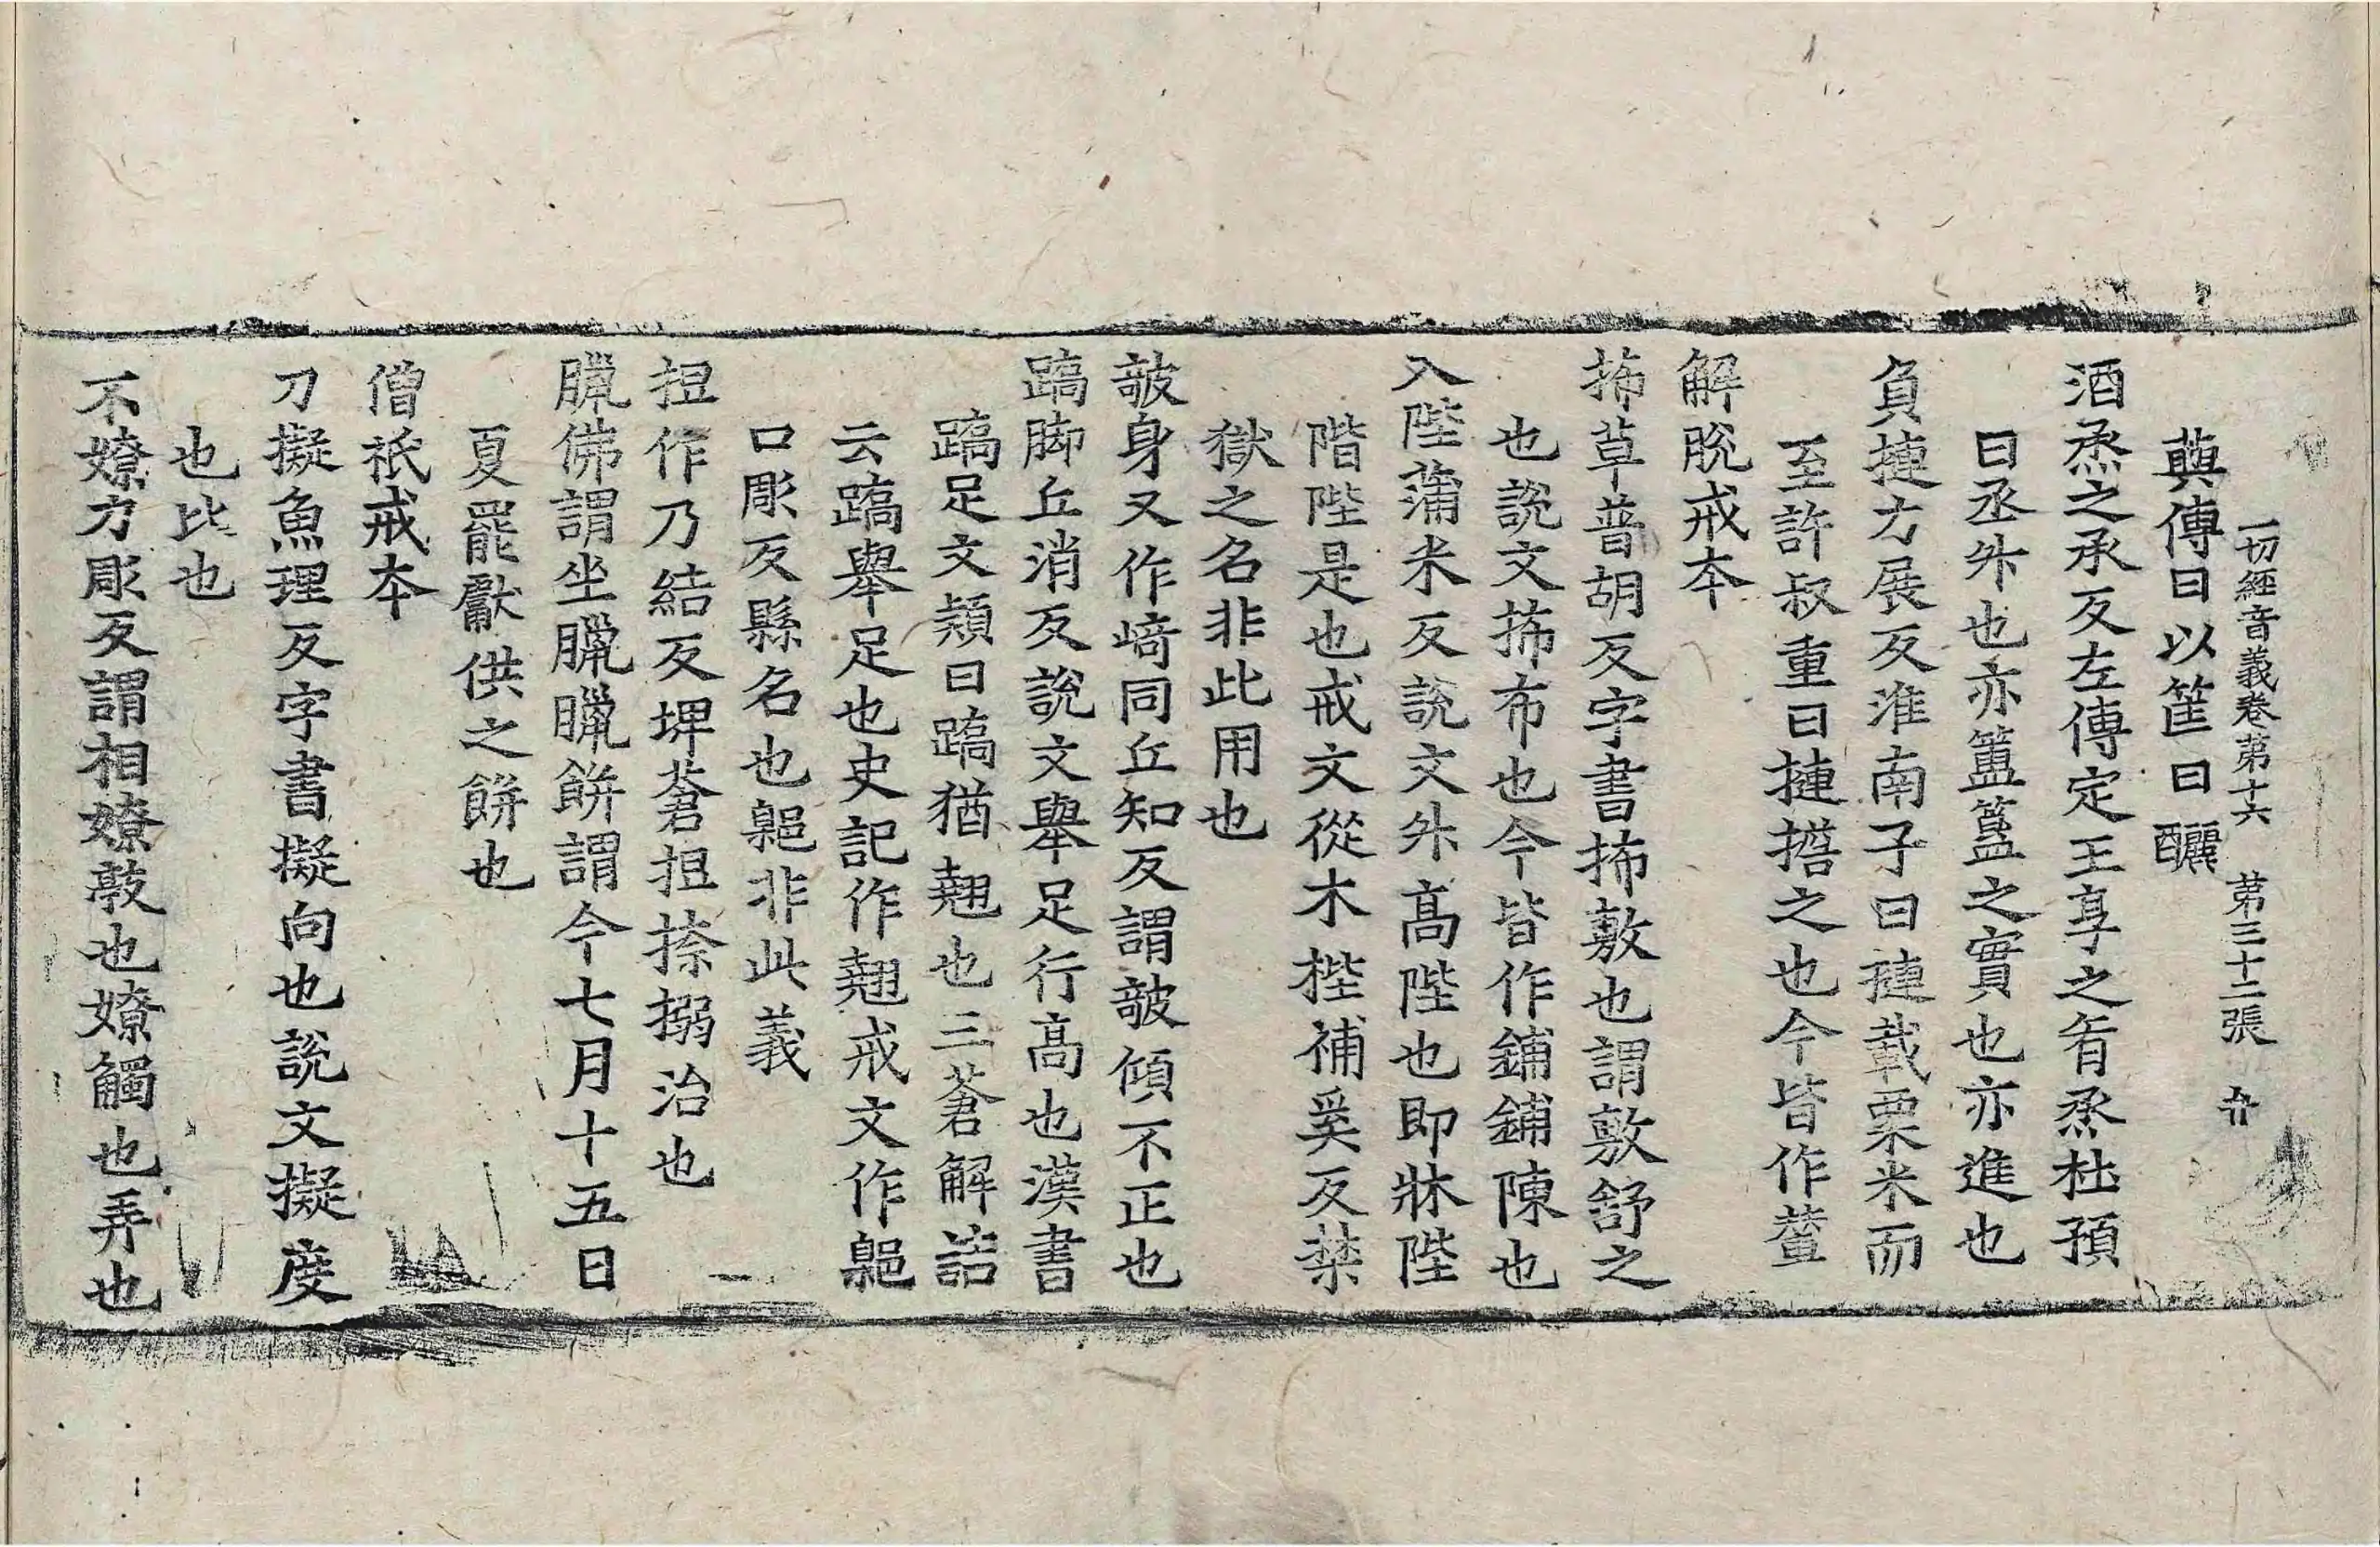 一切經音義卷第十六　第三十二張　弁
藇傳曰以筐曰釃
酒烝之承反左傳定王享之肴烝杜預
曰丞外也亦簠簋之實也亦進也
負揵力展反淮南子曰揵載粟米而
至許叔重曰揵擔之也今皆作輦
解脫戒本
抪草普胡反字書抪敷也謂敷舒之
也說文抪布也今皆作鋪鋪陳也
入陛蒲米反說文外高陛也即牀陛
階陛是也戒文從木梐補奚反禁
獄之名非此用也
㿭身又作崎同丘知反謂㿭傾不正也
蹻脚丘消反說文舉足行高也漢書
蹻足文潁曰蹻猶翹也三蒼解詁
云蹻舉足也史記作翹戒文作鄡
口彫反縣名也鄡非此義
担作乃結反埤蒼担捺搦治也
臈佛謂坐臈臈餅謂今七月十五日
夏罷獻供之餅也
僧祇戒本
刀擬魚理反字書擬向也說文擬度
也比也
不嫽力彫反謂相嫽敦也嫽觸也弄也